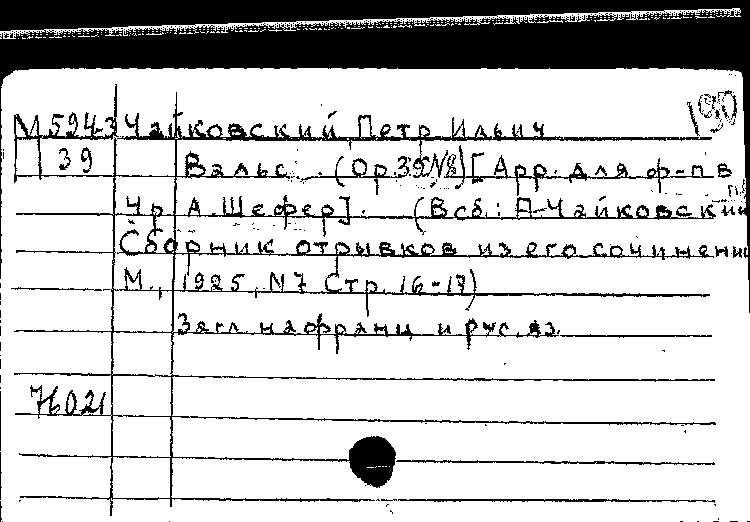 М 594-3 Чайковский, Петр Ильич 190
39 Вальс. (Op. 39 №8) [Арр. для ф-п в
4 р. А. Шефер]. (В сб.: П. Чайковский
Сборник отрывков из его сочинени
М., 1925, N7 Стр. 16-17)
Загл. на франц. и рус. яз.
76021